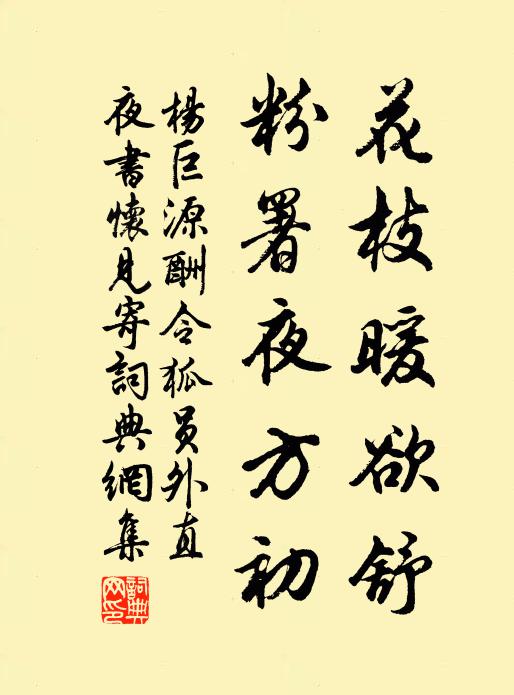 花枝暖欲舒
粉署夜方初
楊巨源酬令狐員外直
夜書懷見寄詞典網集
詞典網印